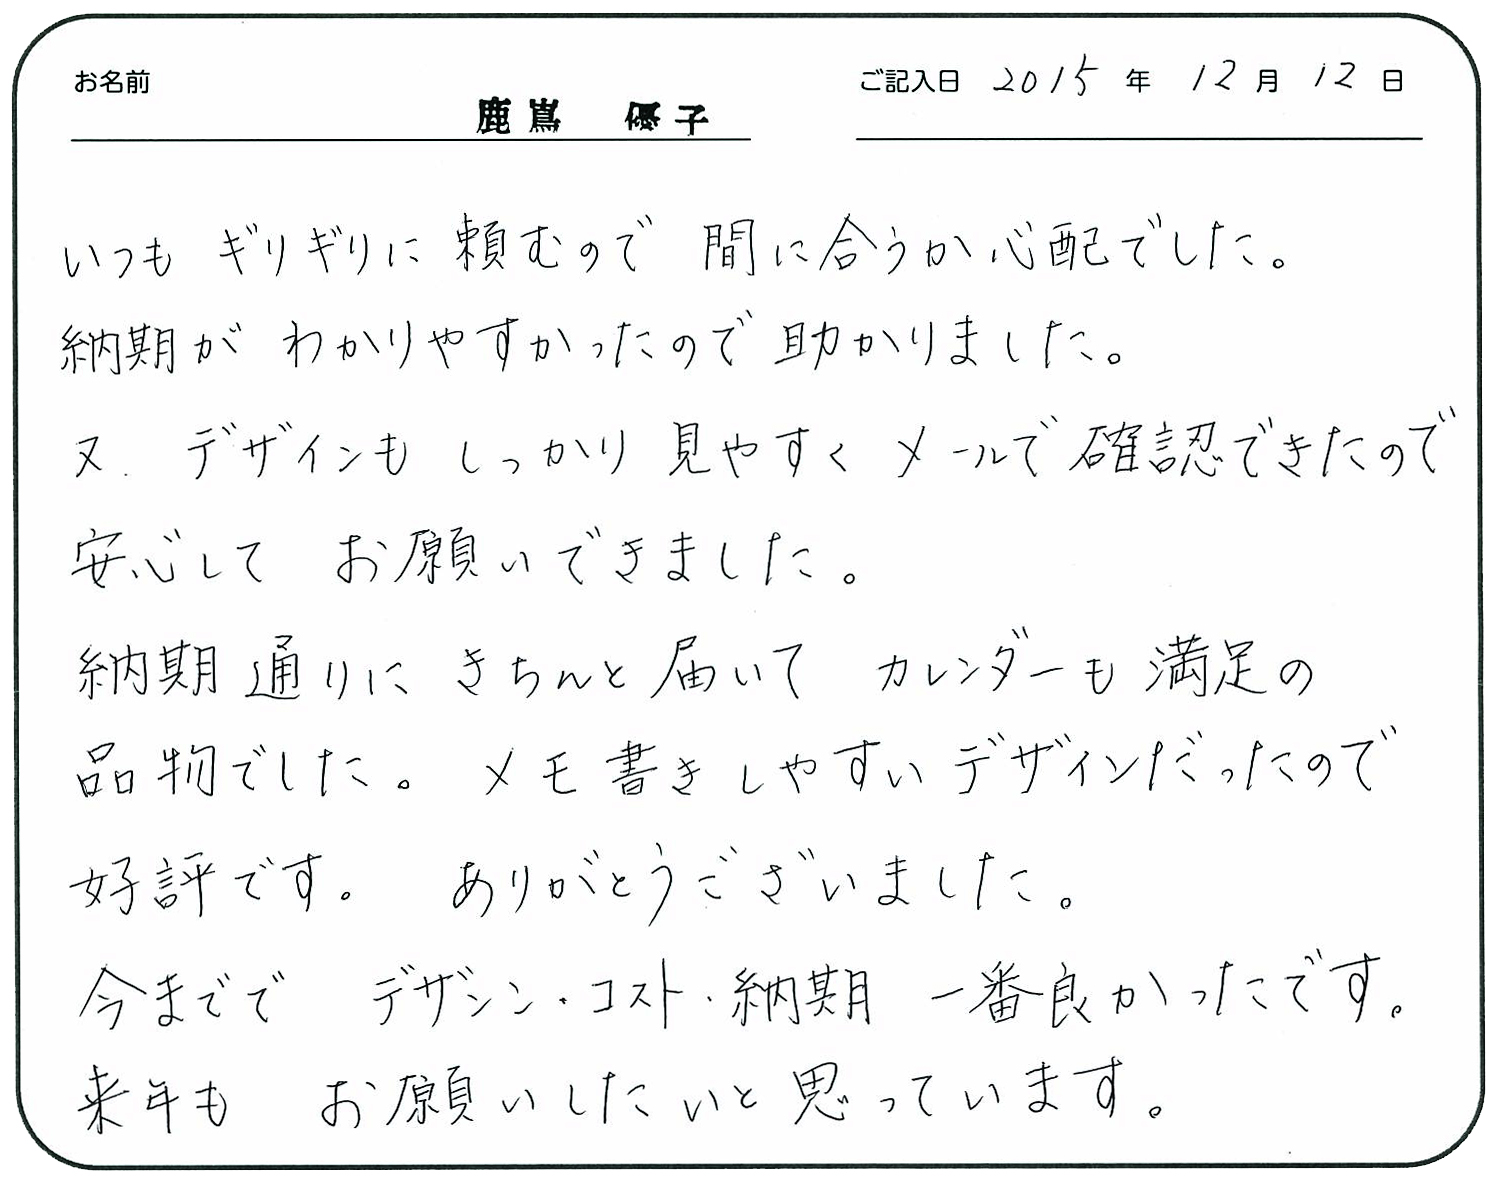 お名前 鹿嶌 優子 ご記入日 2015年 12月 12日
いつも ギリギリに 頼むので 間に合うか心配でした。
納期が わかりやすかったので 助かりました。
又、デザインも しっかり 見やすく メールで 確認できたので
安心して お願いできました。
納期通りに きちんと 届いて カレンダーも 満足の
品物でした。 メモ書きしやすいデザインだったので
好評です。 ありがとうございました。
今までで デザンン・コスト・納期 一番良かったです。
来年も お願いしたいと思っています。